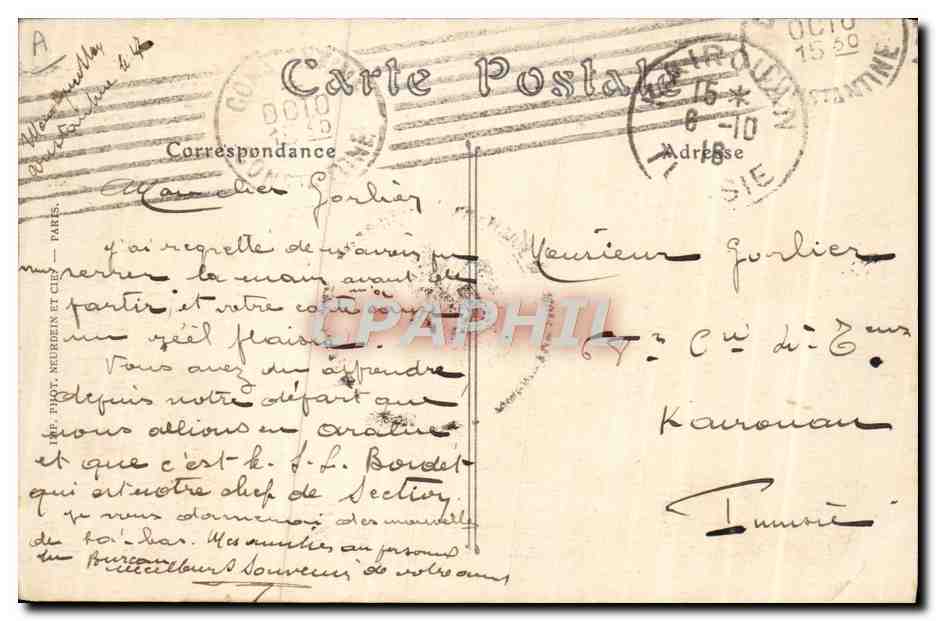 A
Carte Postale
Correspondance
Adresse
CONSTANTINE
OCTO
15 45
KAIROUAN
15 *
6 -10
16
OCTO
15 30
CONSTANTINE
IMP. PHOT. NEURDEIN ET CIE — PARIS.
Mon cher Gorlier
j'ai regretté de n'avoir pu
vous serrer la main avant de
partir, et votre carte
un réel plaisir.
Vous avez du apprendre
depuis notre départ que
nous allions en
et que c'est le S. L. Bordet
qui est notre chef de Section.
je vous donnerai des nouvelles
de là-bas. Mes amitiés au personnel
du Bureau
meilleurs Souvenirs de votre ami
Monsieur Gorlier
Cie de
Kairouan
Tunisie
CPAPHIL